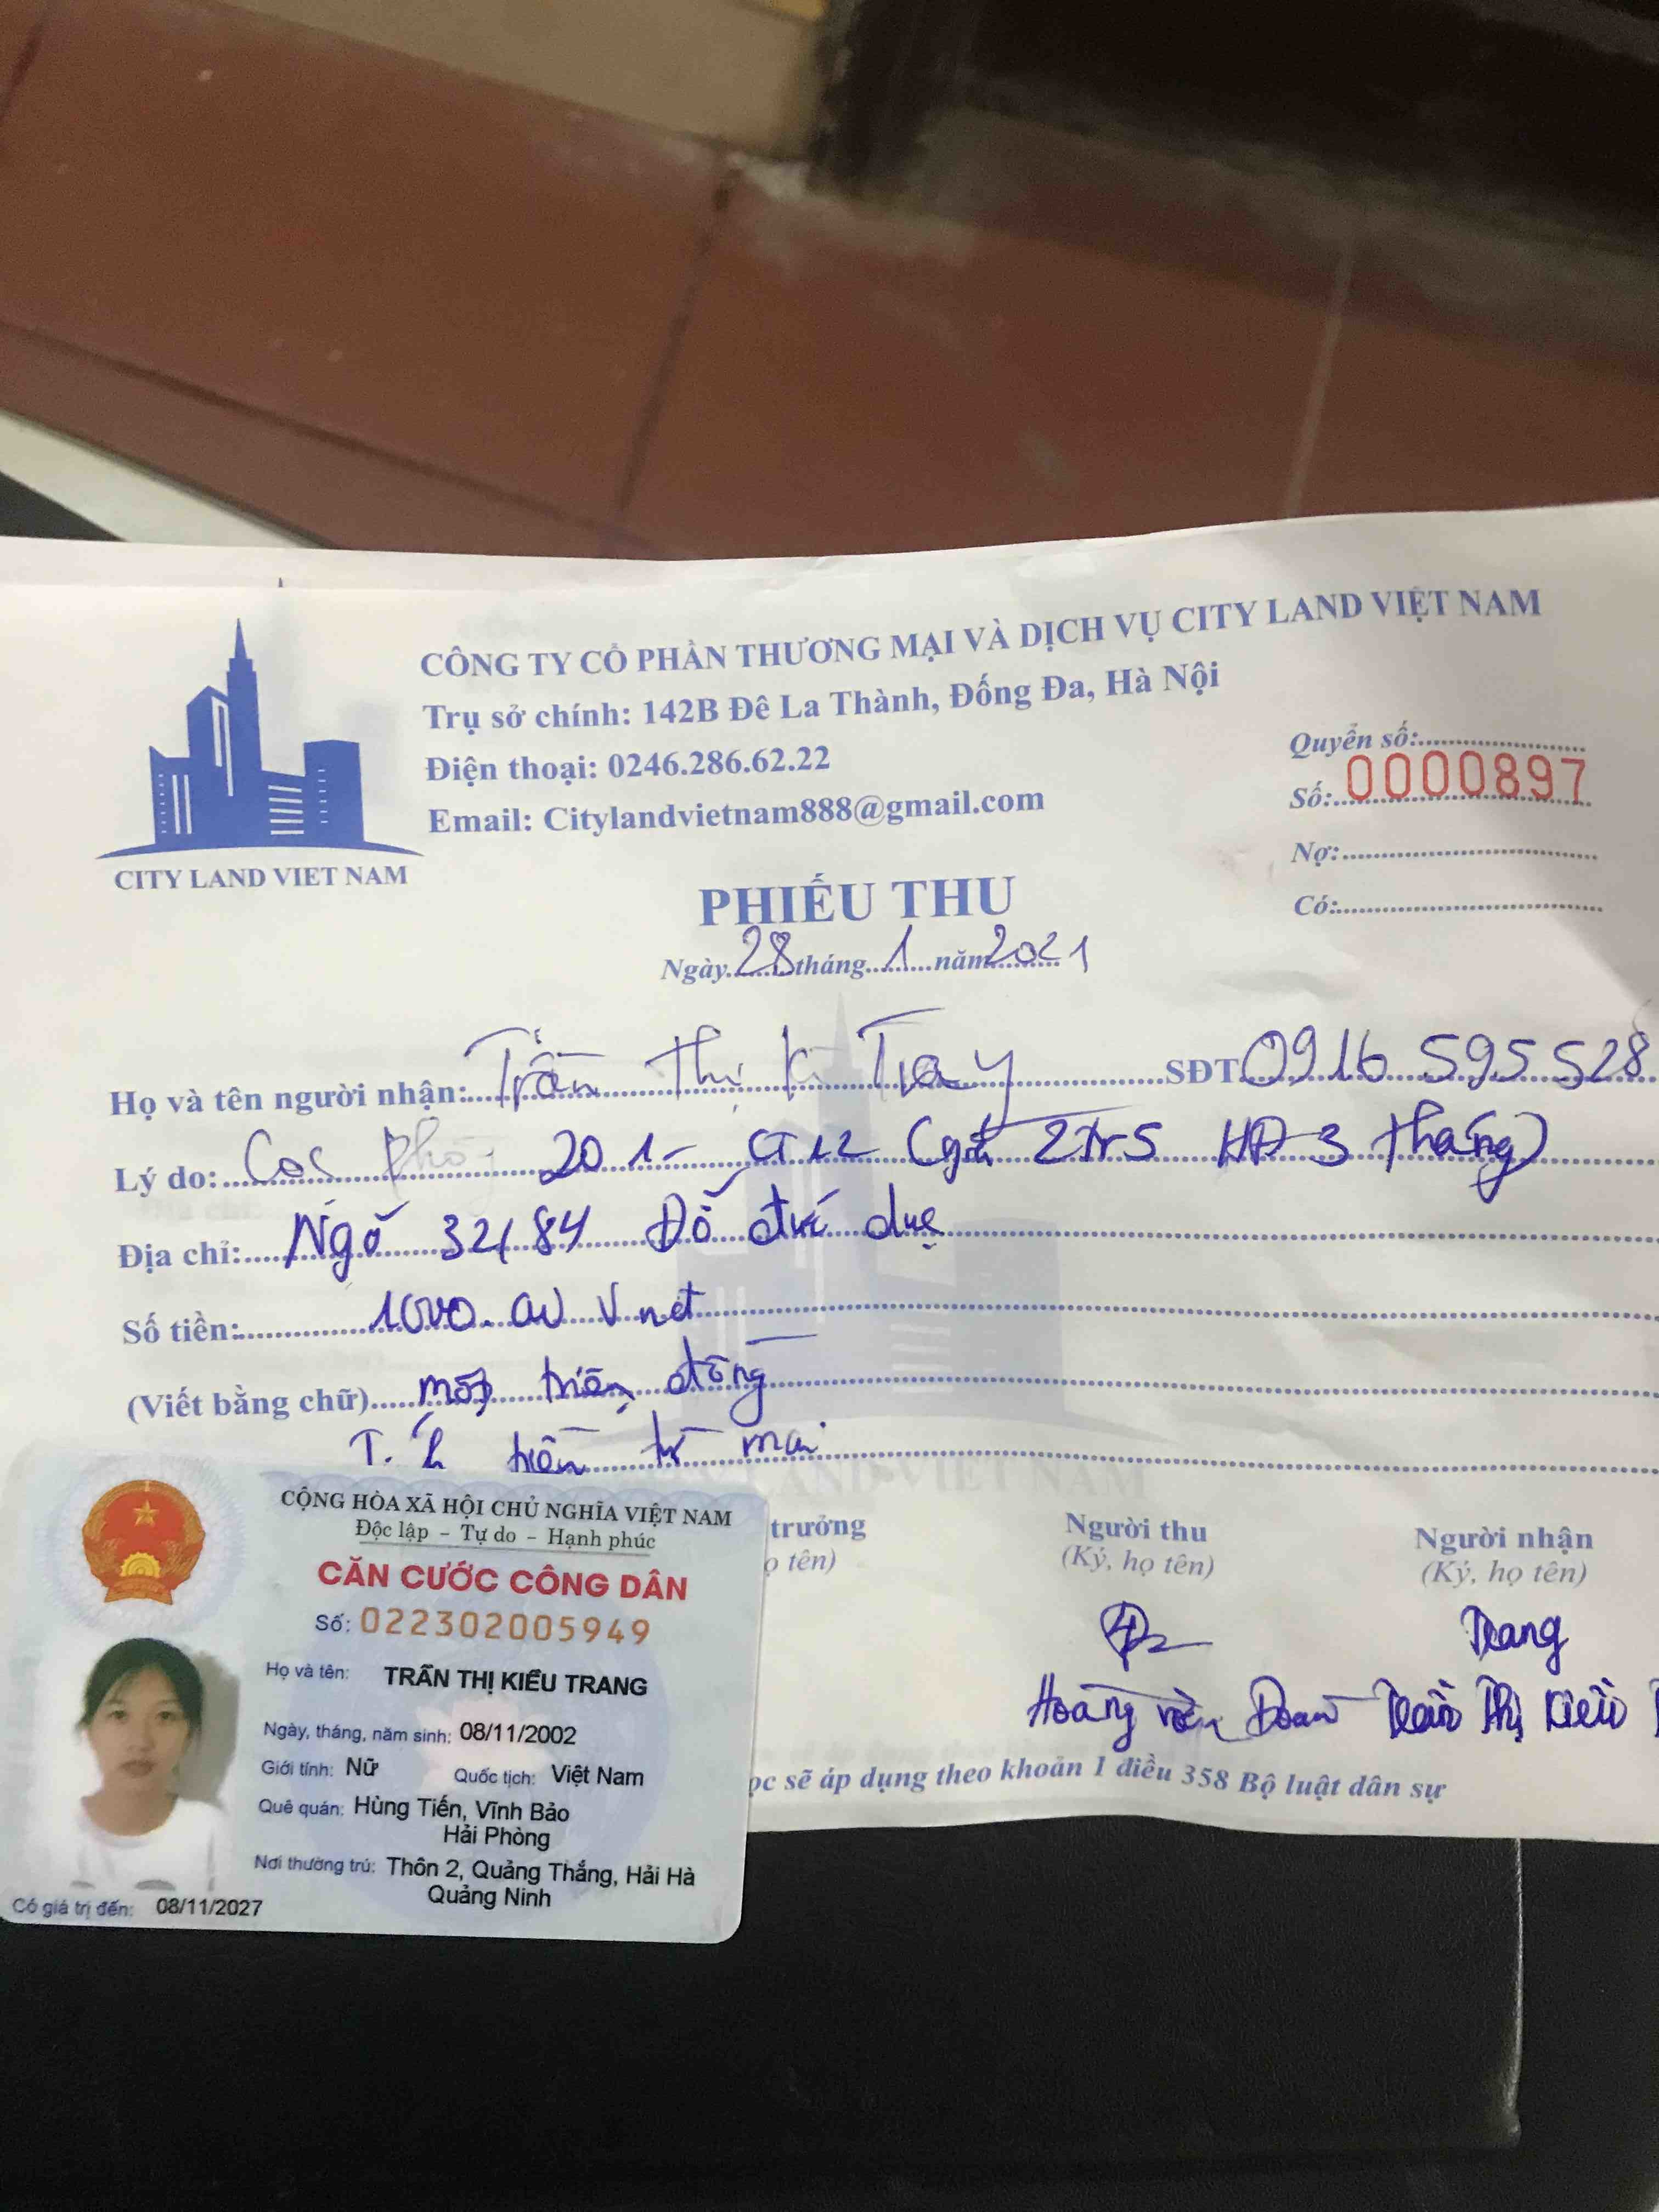 CÔNG TY CỔ PHẦN THƯƠNG MẠI VÀ DỊCH VỤ CITY LAND VIỆT NAM
Trụ sở chính: 142B Đê La Thành, Đống Đa, Hà Nội
Điện thoại: 0246.286.62.22
Email: Citylandvietnam888@gmail.com
CITY LAND VIET NAM
Quyển số:
Số: 0000897
Nợ:
Có:
PHIẾU THU
Ngày 28 tháng 1 năm 2021
Họ và tên người nhận: Trần Thị K Trag SĐT 0916 595 528
Lý do: Cọc Phòg 201 - CT12 ( 2Tr5 HĐ 3 tháng)
Địa chỉ: Ngõ 32/84 Đỗ đức dục
Số tiền: 1000.000 Vnđ
(Viết bằng chữ) một triệu đồng
trưởng
tên)
Người thu
(Ký, họ tên)
Người nhận
(Ký, họ tên)
Trang
Hoàng văn Doan
Trần Thị Kiều
ọc sẽ áp dụng theo khoản 1 điều 358 Bộ luật dân sự
CỘNG HÒA XÃ HỘI CHỦ NGHĨA VIỆT NAM
Độc lập - Tự do - Hạnh phúc
CĂN CƯỚC CÔNG DÂN
Số: 022302005949
Họ và tên: TRẦN THỊ KIỀU TRANG
Ngày, tháng, năm sinh: 08/11/2002
Giới tính: Nữ Quốc tịch: Việt Nam
Quê quán: Hùng Tiến, Vĩnh Bảo
Hải Phòng
Nơi thường trú: Thôn 2, Quảng Thắng, Hải Hà
Quảng Ninh
Có giá trị đến: 08/11/2027